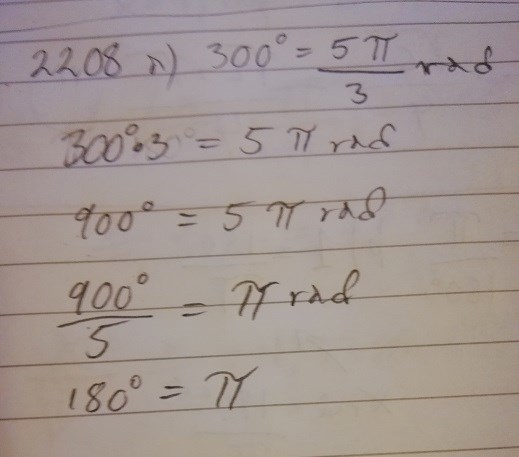 2208 n) 300° = 5π/3 rad
300°·3 = 5 π rad
900° = 5 π rad
900°/5 = π rad
180° = π